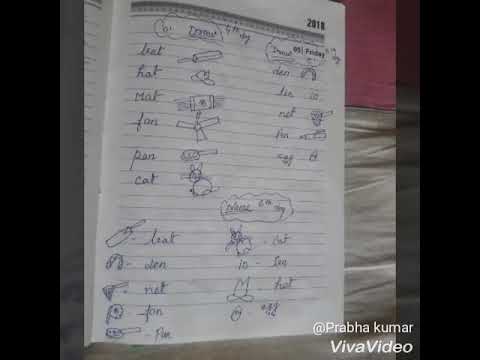 2018
Draw 4th day
bat
hat
Mat
fan
pan
cat
Draw 5th day
05 Friday
den
ten
net
Pen
egg
Draw 6th day
bat
cat
den
ten
net
hat
fan
egg
Pan
@Prabha kumar
VivaVideo